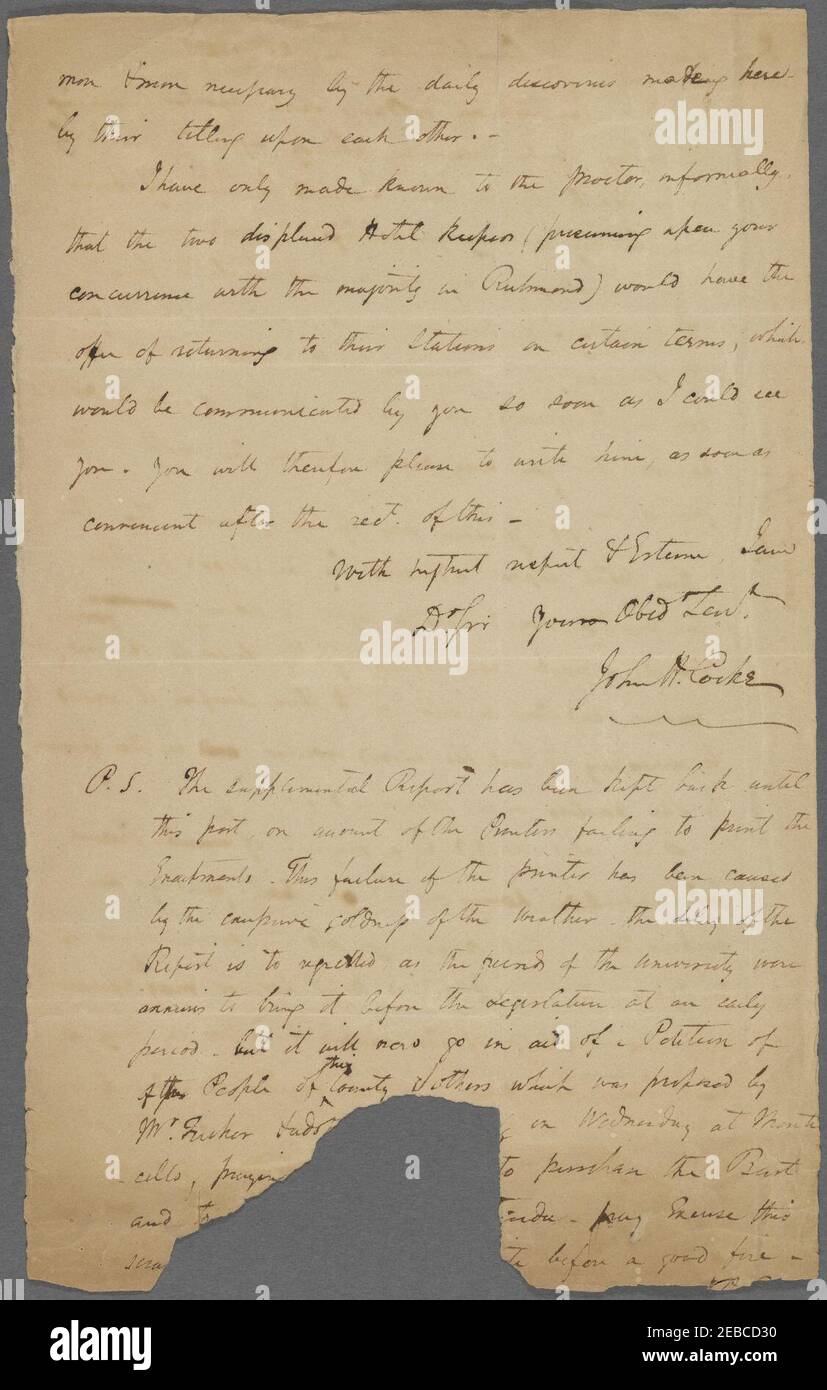 more & more necessary by the daily discoveries making here
by their telling upon each other. -
I have only made known to the Proctor, informally,
that the two displaced Hotel keepers (presuming upon your
concurrence with the majority in Richmond) would have the
offer of returning to their Stations on certain terms, which
would be communicated by you so soon as I could see
you. You will therefore please to write him, as soon as
convenient after the rect. of this -
With highest respect & Esteem, I am
Dr Sir Yours Obedt Servt
John H. Cocke
P.S. The supplemental Report has been kept back until
this post, on account of the Printers failing to print the
Enactments. This failure of the printer has been caused
by the excessive coldness of the weather - the delay of the
Report is to regretted as the friends of the University were
anxious to bring it before the Legislature at an early
period - but it will now go in aid of a Petition of
the People of this County & others which was proposed by
Mr. Tucker on Wednesday at Monti
cello, praying to purchase the Bust
and pray Excuse this
before a good fire -
alamy
Image ID: 2EBCD30
www.alamy.com